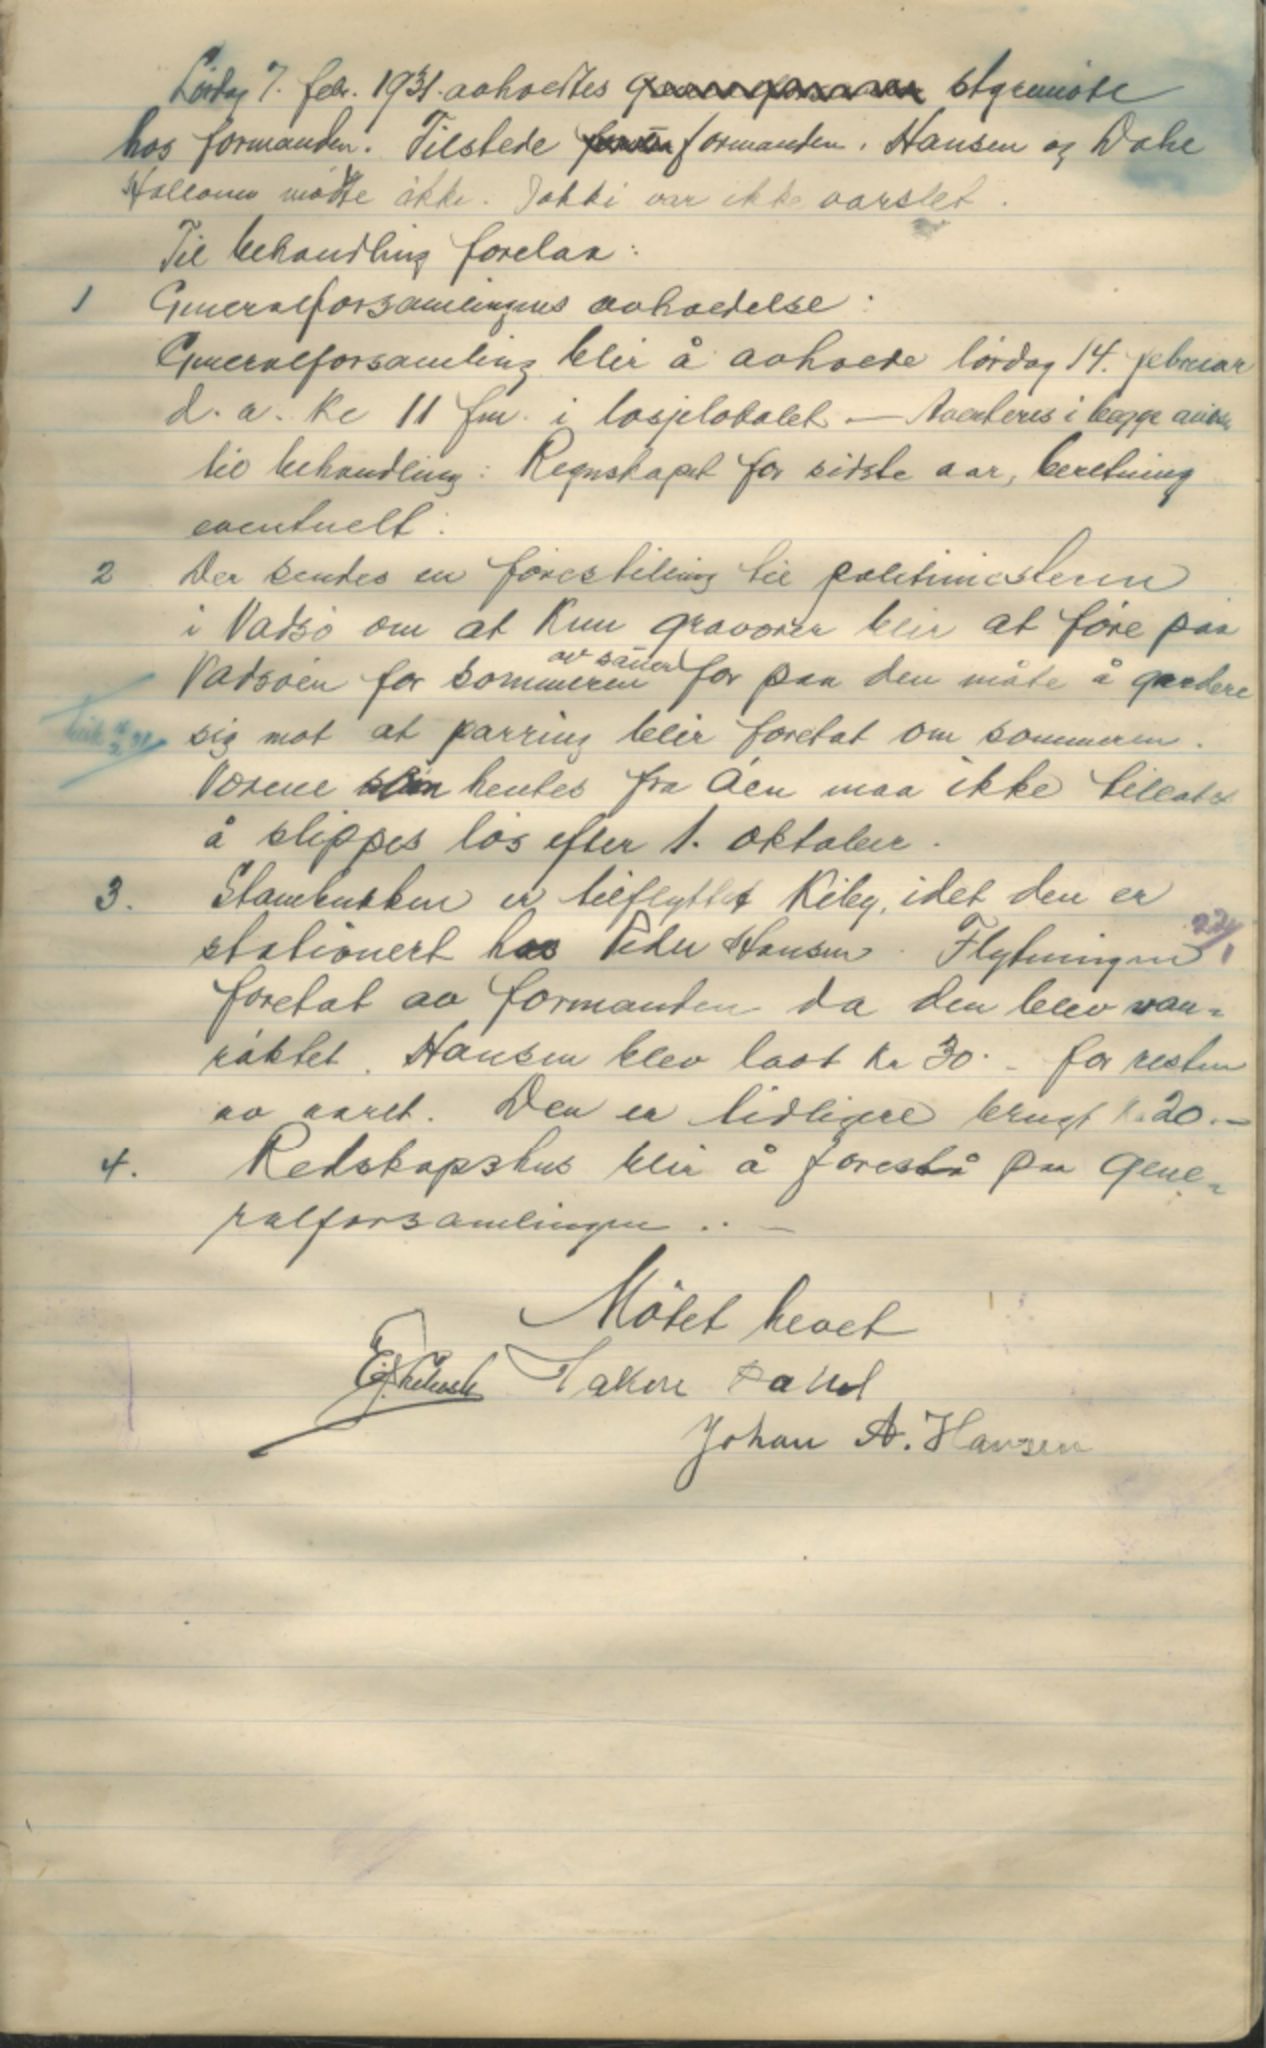 Lördag 7. feb. 1931. avholdtes styremöte
hos formanden. Tilstede formanden, Hansen og Dahl
mödte ikke. Jakki var ikke varslet.
Til behandling forelaa:
1 Generalforsamlingens avholdelse:
Generalforsamling blir å avholde lördag 14. februar
d. a. kl 11 fm. i losjelokalet — Averteres i begge aviser
til behandling: Regnskapet for sidste aar, beretning
eventuelt.
2 Der sendes en forestilling til politimesteren
i Vadsö om at kun gravorer blir at före paa
av sauer
Vadsöen for sommeren for paa den måte å gardere
sig mot at parring blir foretat om sommeren.
Værene som hentes fra Öen maa ikke tillates
å slippes lös efter 1. oktober.
3. Stambukken er tilflyttet Kiby, idet den er
stationert hos Peder Hansen. Flytningen 22/1
foretat av formanden da den blev van-
röktet. Hansen blev lovt kr 30.- for resten
av aaret. Den er tidligere brugt kr 20.-
4. Redskapshus blir å forestå paa gene-
ralforsamlingen. . —
Mötet hevet
Hakon Dahl
Johan A. Hansen